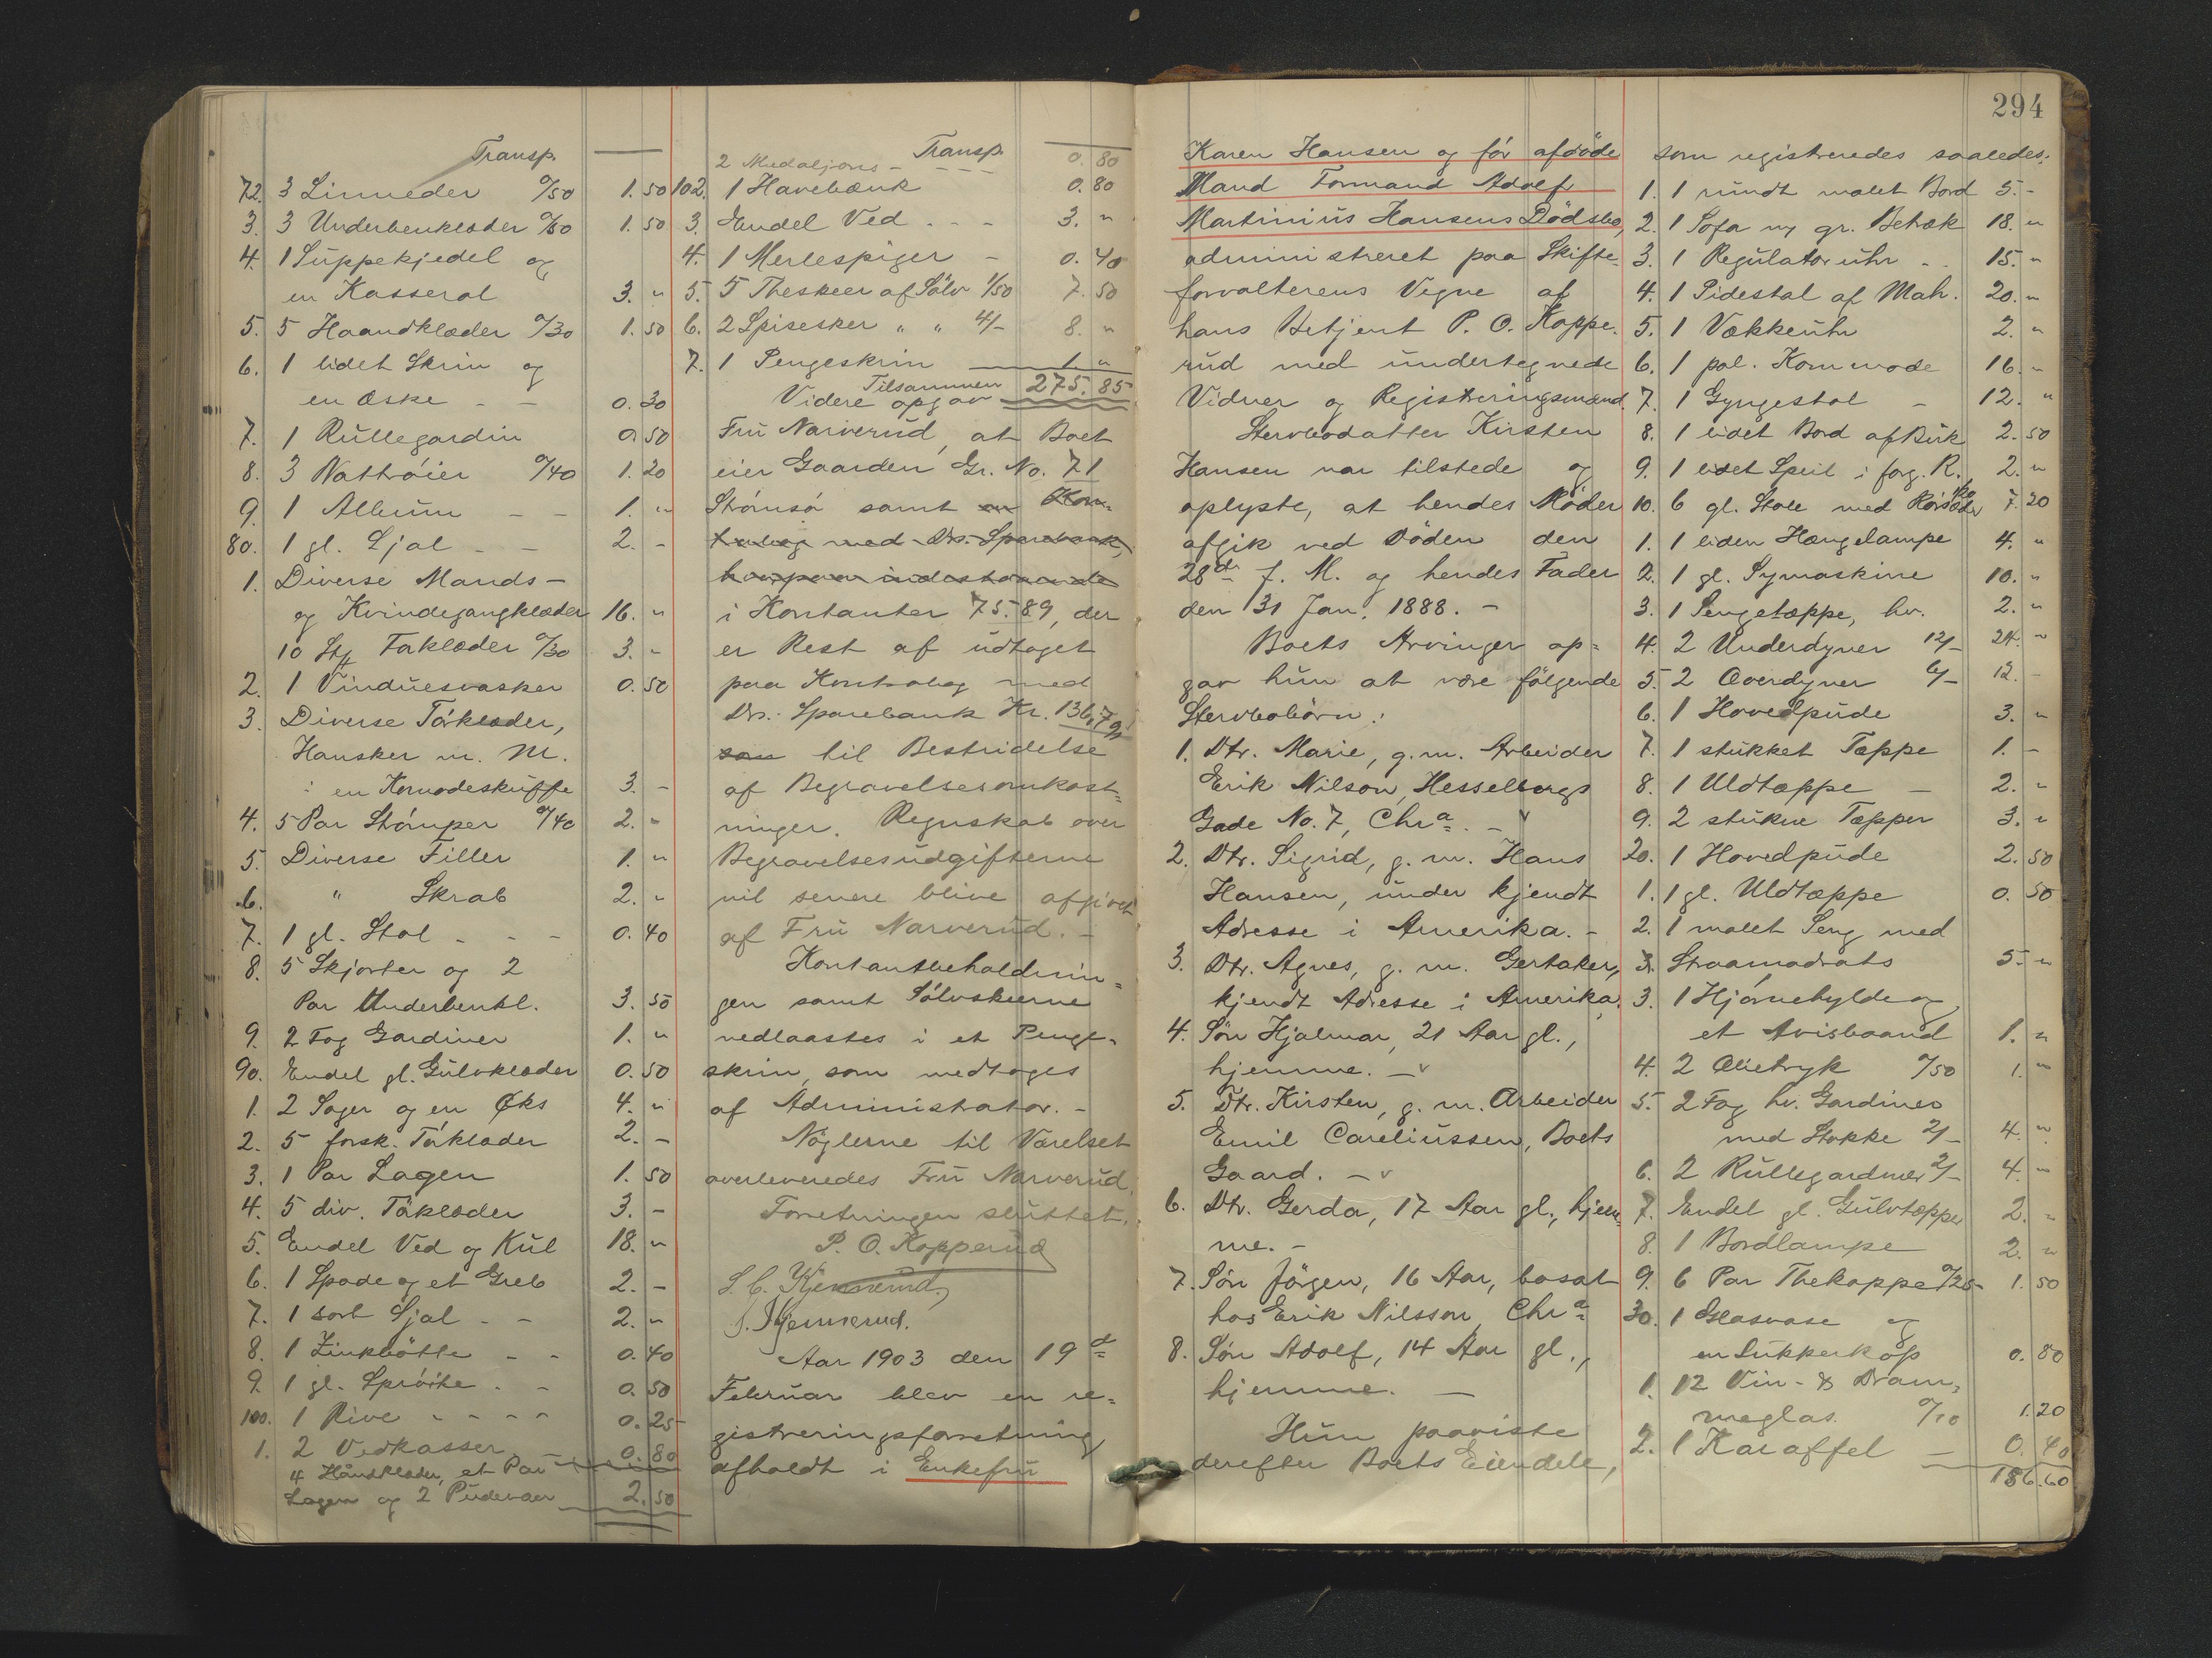 Transp.
72. 3 Linneder 0/50 1.50
3. 3 Underbenklæder 0/50 1.50
4. 1 Suppekjedel og
en Kasserol 3. "
5. 5 Haandklæder 0/30 1.50
6. 1 lidet Skrin og
en Æske - - 0.30
7. 1 Rullegardin 0.50
8. 3 Nattrøier 0/40 1.20
9. 1 Album - - 1. "
80. 1 gl. Sjal - - 2. -
1. Diverse Mands-
og Kvindegangklæder 16. "
10 Stk Taklæder 0/30 3. -
2. 1 Vinduesvasker 0.50
3. Diverse Töklæder,
Hansker m. M.
i en Komodeskuffe 3. -
4. 5 Par Strömper 0/40 2. "
5. Diverse Filler 1. "
6. " Skrab 2. "
7. 1 gl. Stol - - - 0.40
8. 5 Skjorter og 2
Par Underbenkl. 3.50
9. 2 Fag Gardiner 1. "
90. Endel gl. Gulvklæder 0.50
1. 2 Sager og en Øks 4. "
2. 5 forsk. Töklæder 2. -
3. 1 Par Lagen 1.50
4. 5 div. Töklæder 3. -
5. Endel Ved og Kul 18. "
6. 1 Spade og et Greb 2. -
7. 1 sort Sjal - - 2. "
8. 1 Zinkbötte - - 0.40
9. 1 gl. Spröite - - 0.50
100. 1 Rive - - - - 0.25
1. 2 Vedkasser - 0.80
4 Håndklæder, et Par
Lagen og 2 Pudevaer 2.50
Transp.
2 Medaljons - - - - 0.80
102. 1 Havebænk 0.80
3. Endel Ved - - - 3. "
4. 1 Merlespiger - 0.40
5. 5 Theskeer af Sölv 1/50 7.50
6. 2 Spiseskeer " " 4/- 8. "
7. 1 Pengeskrin 1. "
Tilsammen 275.85
Videre opgav
Fru Narverud, at Boet
eier Gaarden Gr. No. 71
Strömsö samt en Kon-
trabog med Drs. Sparebank,
hvorpaa indestaaende
i Kontanter 75.89, der
er Rest af udtaget
paa Kontrabog med
Drs. Sparebank Kr. 136.79
som til Bestridelse
af Begravelsesomkost-
ninger. Regnskab over
Begravelsesudgifterne
vil senere blive afgivet
af Fru Narverud. -
Kontantbeholdnin-
gen samt Sölvskeerne
nedlaastes i et Penge-
skrin, som medtoges
af Administrator. -
Nöglerne til Værelset
overleveredes Fru Narverud.
Forretningen sluttet.
P. O. Kopperud
S. C. Kjennerud.
J. Kjennerud.
Aar 1903 den 19de
Februar blev en re-
gistreringsforretning
afholdt i Enkefru
294
Karen Hansen og för afdöde
Mand Formand Adolf
Martinius Hansens Dödsbo,
administreret paa Skifte-
forvalterens Vegne af
hans Betjent P. O. Koppe-
rud med undertegnede
Vidner og Registreringsmænd.
Stervbodatter Kirsten
Hansen var tilstede og
oplyste, at hendes Moder
afgik ved Döden den
28de f. M. og hendes Fader
den 31 Jan. 1888. -
Boets Arvinger op-
gav hun at være fölgende
Stervbobörn:
1. Dtr. Marie, g. m. Arbeider
Erik Nilson, Hesselbergs
Gade No. 7, Chra. -
2. Dtr. Sigrid, g. m. Hans
Hansen, under kjendt
Adresse i Amerika. -
3. Dtr. Agnes, g. m. Gertaker,
kjendt Adresse i Amerika.
4. Sön Hjalmar, 21 Aar gl.,
hjemme. -
5. Dtr. Kirsten, g. m. Arbeider
Emil Careliussen, Boets
Gaard. -
6. Dtr. Gerda, 17 Aar gl., hjem-
me. -
7. Sön Jörgen, 16 Aar, bosat
hos Erik Nilsson, Chra
8. Sön Adolf, 14 Aar gl.,
hjemme. -
Hun paaviste
derefter Boets Eiendele,
som registreredes saaledes:
1. 1 rundt malet Bord 5. -
2. 1 Sofa m gr. Betræk 18. "
3. 1 Regulatoruhr - - 15. "
4. 1 Pidestal af Mah. 20. "
5. 1 Vækkeuhr 2. "
6. 1 pol. Kommode 16. "
7. 1 Gyngestol - 12. "
8. 1 lidet Bord af Birk 2.50
9. 1 lidet Speil i forg. R. 2. "
10. 6 gl. Stole med Rörsæder 1/20 7.20
1. 1 liden Hængelampe 4. "
2. 1 gl. Symaskine 10. "
3. 1 Sengetæppe, hv. 2. "
4. 2 Underdyner 12/- 24. "
5. 2 Overdyner 6/- 12. -
6. 1 Hovedpude 3. "
7. 1 stukket Tæppe 1. -
8. 1 Uldtæppe - 2. "
9. 2 stukne Tæpper 3. "
20. 1 Hovedpude 2.50
1. 1 gl. Uldtæppe 0.50
2. 1 malet Seng med
Straamadrats 5. "
3. 1 Hjörnehylde og
et Avisbaand 1. "
4. 2 Olietryk 0/50 1. "
5. 2 Fag hv. Gardiner
med Stokke 2/- 4. "
6. 2 Rullegardiner 2/- 4. "
7. Endel gl. Gulvtæpper 2. "
8. 1 Bordlampe 2. "
9. 6 Par Thekoppe 0/25 1.50
30. 1 Glasvase og
en Sukkerkop 0.80
1. 12 Vin- & Dram-
meglas. 0/10 1.20
2. 1 Karaffel - 0.40
186.60